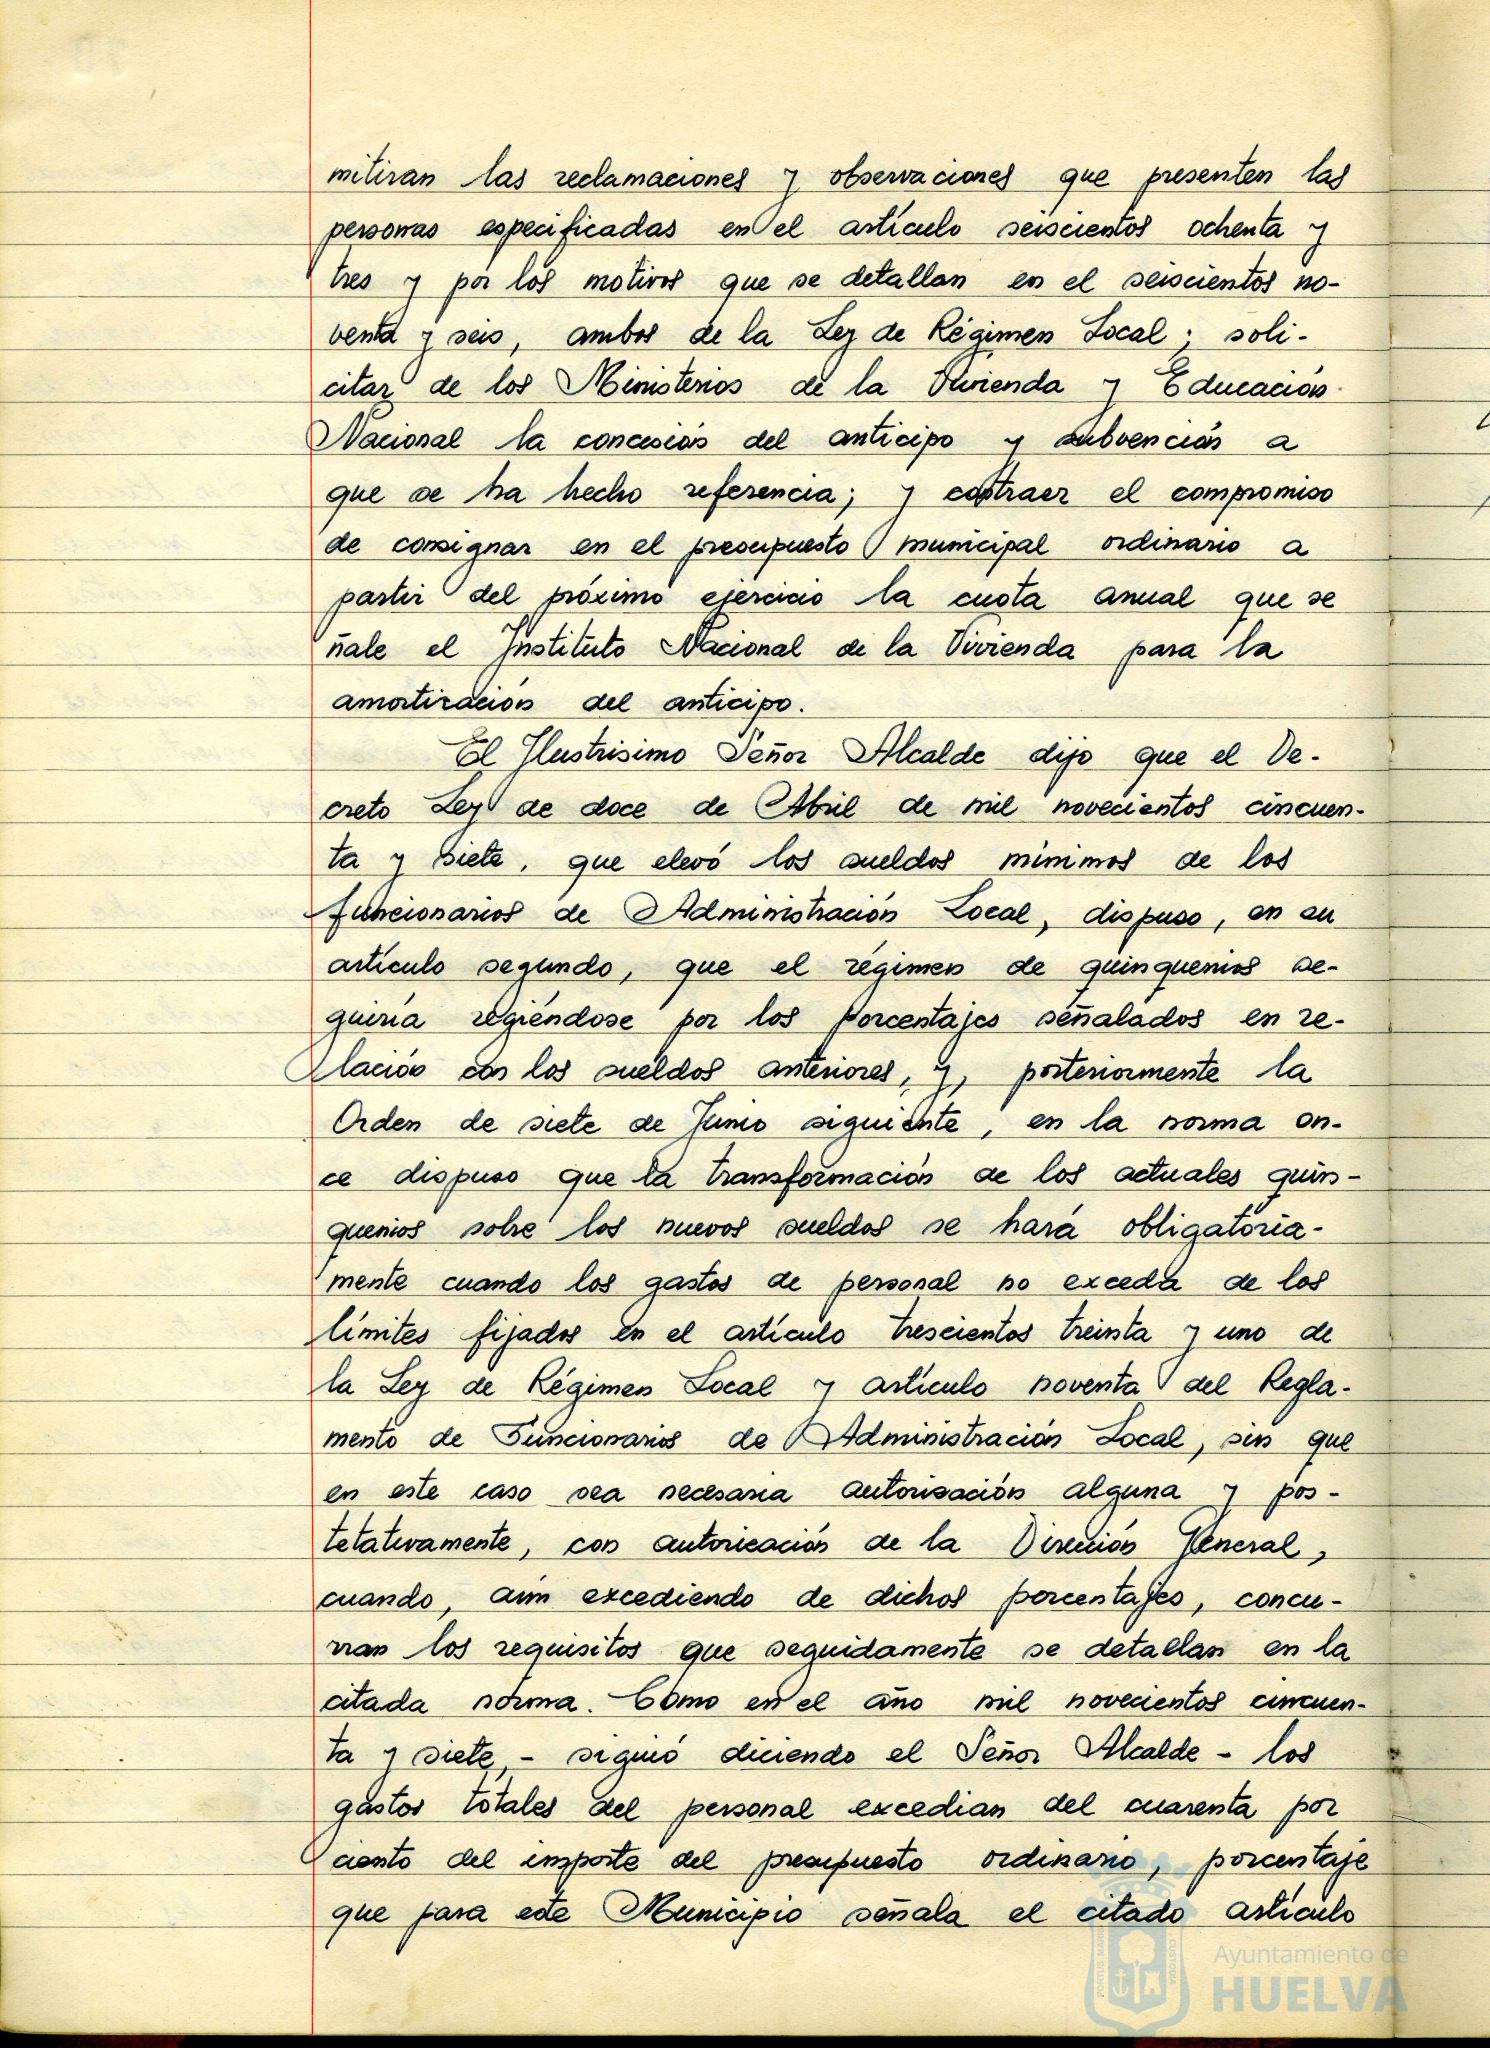 mitiran las reclamaciones y observaciones que presenten las
personas especificadas en el artículo seiscientos ochenta y
tres y por los motivos que se detallan en el seiscientos no-
venta y seis, ambos de la Ley de Régimen Local; soli-
citar de los Ministerios de la Vivienda y Educación
Nacional la concesión del anticipo y subvención a
que se ha hecho referencia; y contraer el compromiso
de consignar en el presupuesto municipal ordinario a
partir del próximo ejercicio la cuota anual que se
ñale el Instituto Nacional de la Vivienda para la
amortización del anticipo.
El Ilustrisimo Señor Alcalde dijo que el De-
creto Ley de doce de Abril de mil novecientos cincuen-
ta y siete, que elevó los sueldos mínimos de los
funcionarios de Administración Local, dispuso, en su
artículo segundo, que el régimen de quinquenios se-
guiría regiéndose por los porcentajes señalados en re-
lación con los sueldos anteriores, y, posteriormente la
Orden de siete de Junio siguiente, en la norma on-
ce dispuso que la transformación de los actuales quin-
quenios sobre los nuevos sueldos se hará obligatoria-
mente cuando los gastos de personal no exceda de los
límites fijados en el artículo trescientos treinta y uno de
la Ley de Régimen Local y artículo noventa del Regla-
mento de Funcionarios de Administración Local, sin que
en este caso sea necesaria autorización alguna y pos-
tetativamente, con autorización de la Dirección General,
cuando, aún excediendo de dichos porcentajes, concu-
rran los requisitos que seguidamente se detallan en la
citada norma. Como en el año mil novecientos cincuen-
ta y siete, - siguió diciendo el Señor Alcalde - los
gastos totales del personal excedian del cuarenta por
ciento del importe del presupuesto ordinario, porcentaje
que para este Municipio señala el citado artículo
Ayuntamiento de
HUELVA